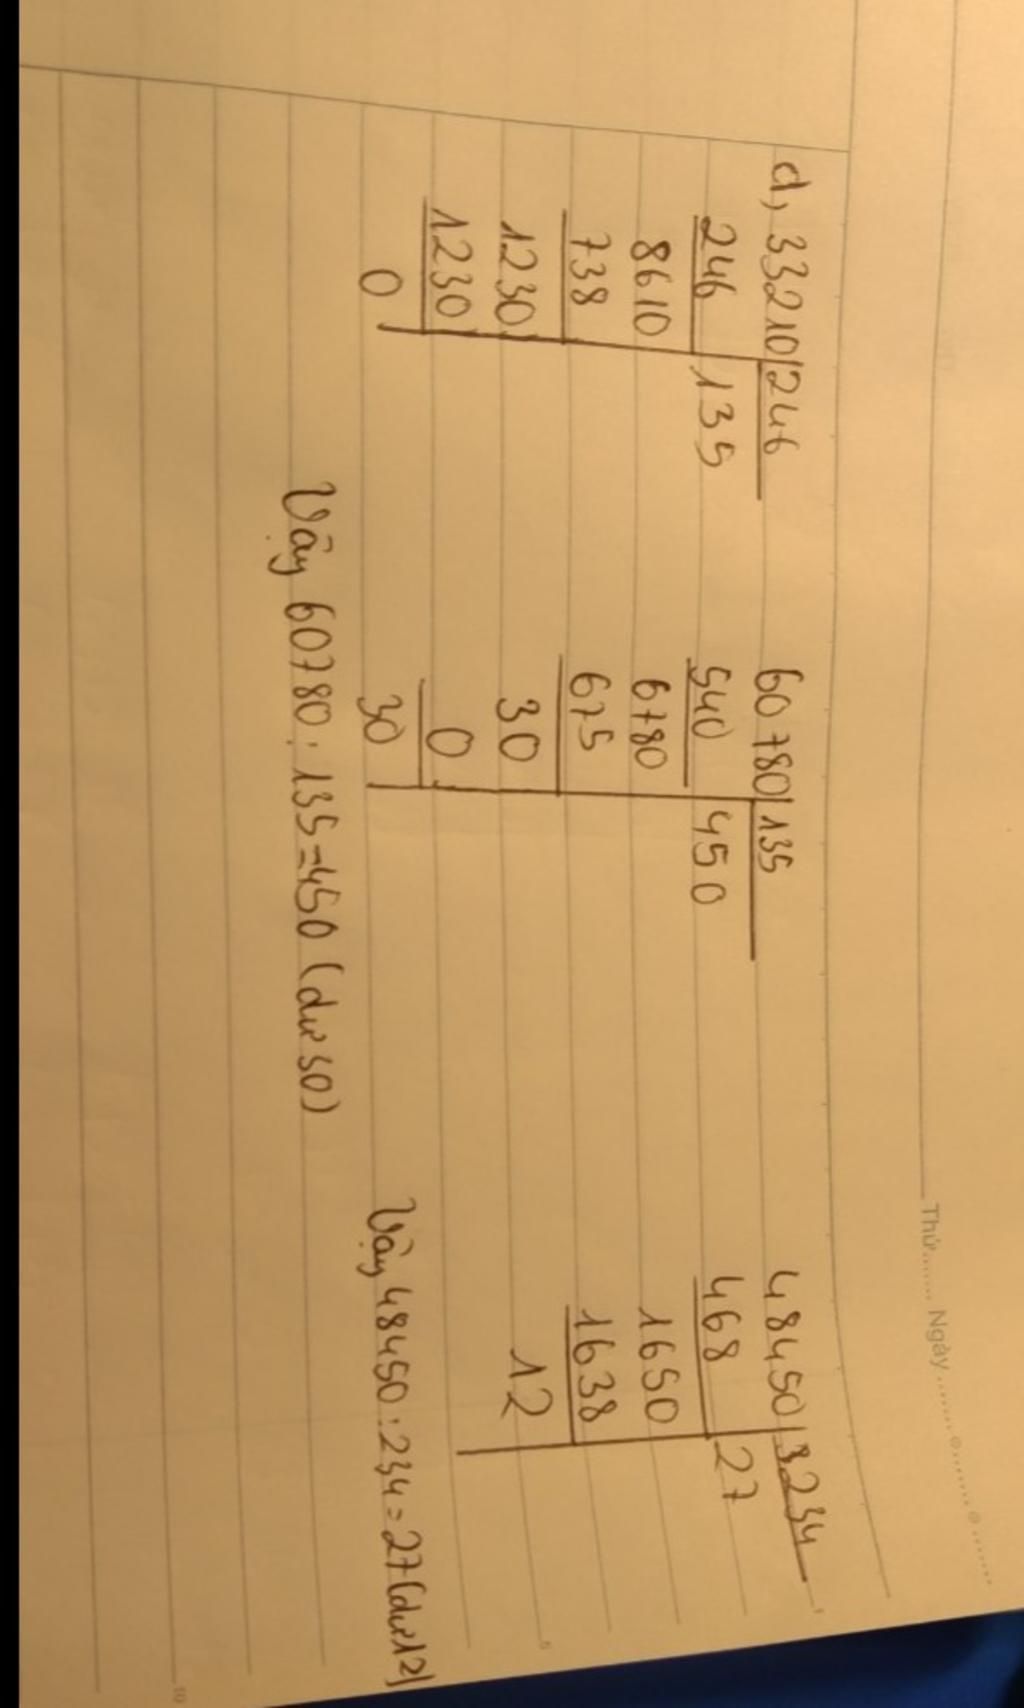 Thứ........ Ngày........
d, 33210 246
246 135
8610
738
1230
1230
0
60780 135
540 450
6780
675
30
0
30
Vậy 60780 : 135 = 450 (dư 30)
48450 3234
468 27
1650
1638
12
Vậy 48450 : 234 = 27 (dư 12)
5
10